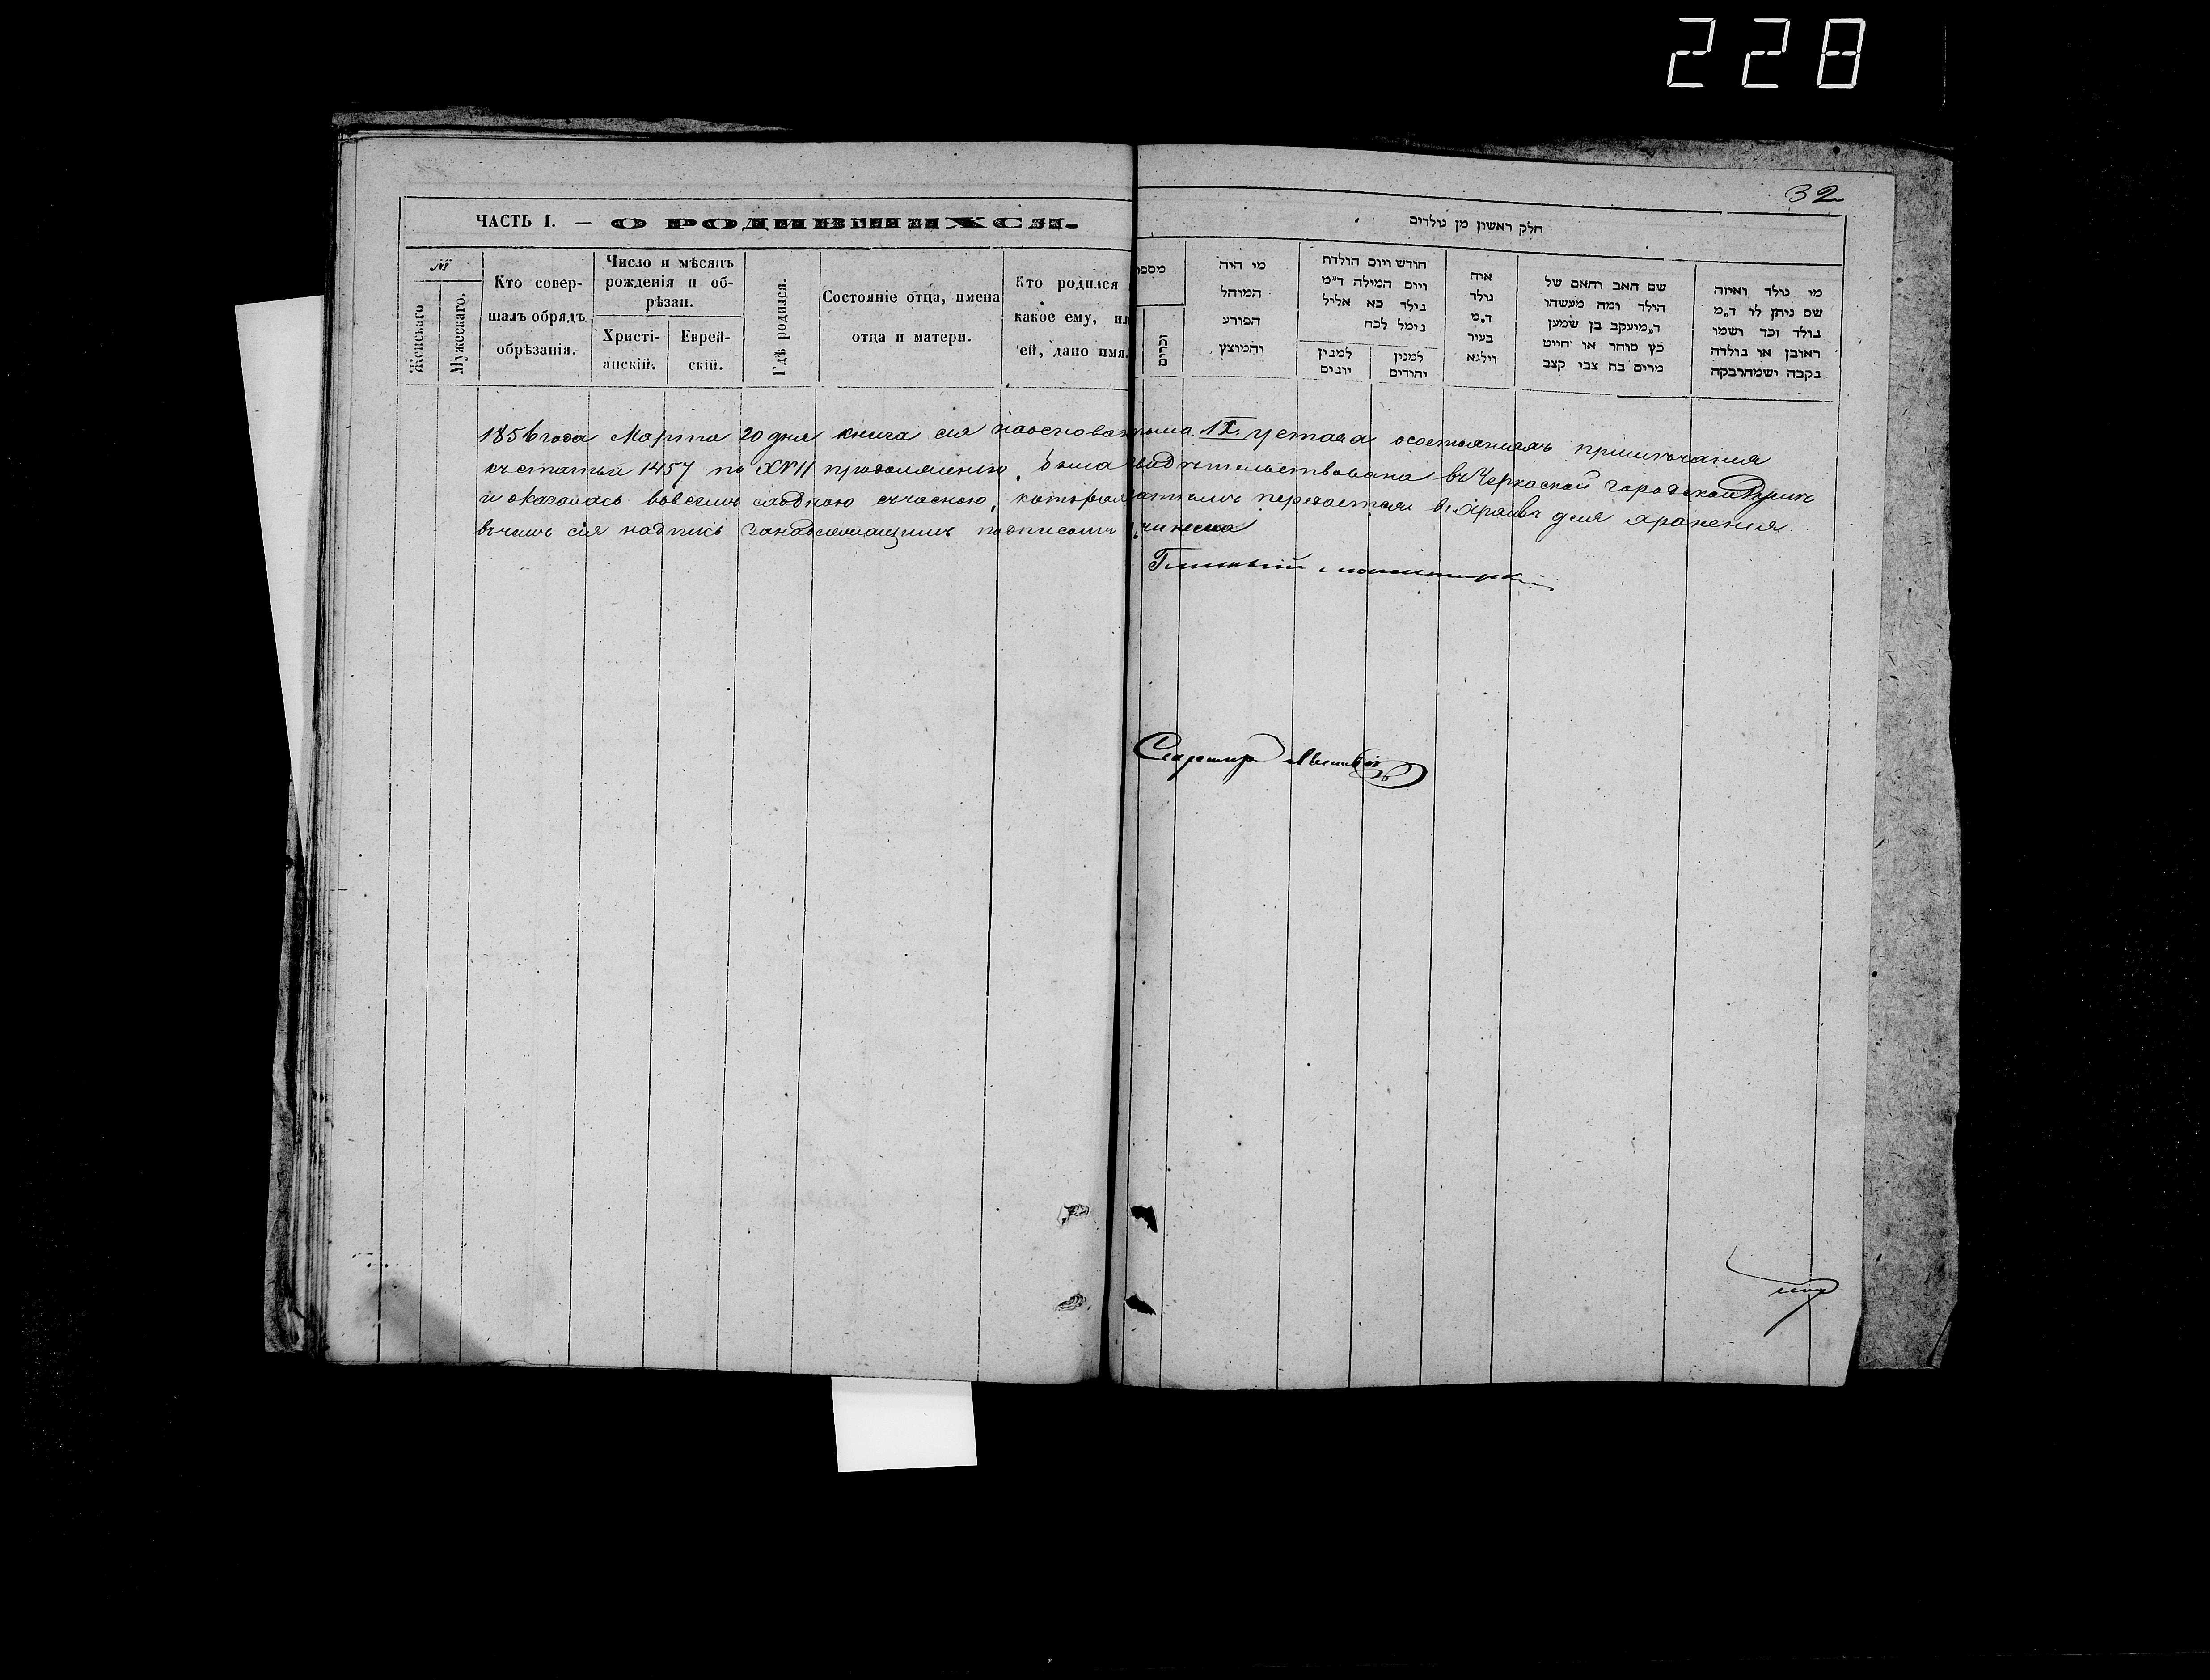 228
32
ЧАСТЬ I. — О РОДИВШИХСЯ.
№
Женскаго
Мужескаго.
Кто совер-
шалъ обрядъ
обрѣзанія.
Число и мѣсяцъ
рожденія и об-
рѣзан.
Христі-
анскій.
Еврей-
скій.
Гдѣ родился.
Состояніе отца, имена
отца и матери.
Кто родился
какое ему, ил
ей, дано имя.
חלק ראשון מן נולדים
מספר
זכרים
מי היה
המוהל
הפורע
והמוצץ
חודש ויום הולדת
ויום המילה ד״מ
נולד כא אליל
נימל לכח
למנין
יונים
למנין
יהודים
איה
נולד
ד״מ
בעיר
ווילנא
שם האב והאם של
הילד ומה מעשהו
ד״מ יעקב בן שמען
כץ סוחר או חייט
מרים בת צבי קצב
מי נולד ואיזה
שם ניתן לו ד״מ
נולד זכר ושמו
ראובן או נולדה
נקבה ושמה רבקה
1856 года Марта 20 дня книга сія на основаніи тома IX. устава о состояніяхъ примѣчанія
къ статьи 1457 по XVII продолженію, была свидѣтельствована въ Черкаской городской Думѣ
и оказалась во всемъ сходною съ часною, которая затемъ передается въ Архивъ для храненія
въ чемъ сія надпись за надлежащимъ подписомъ учинена
Гласный
Секретарь